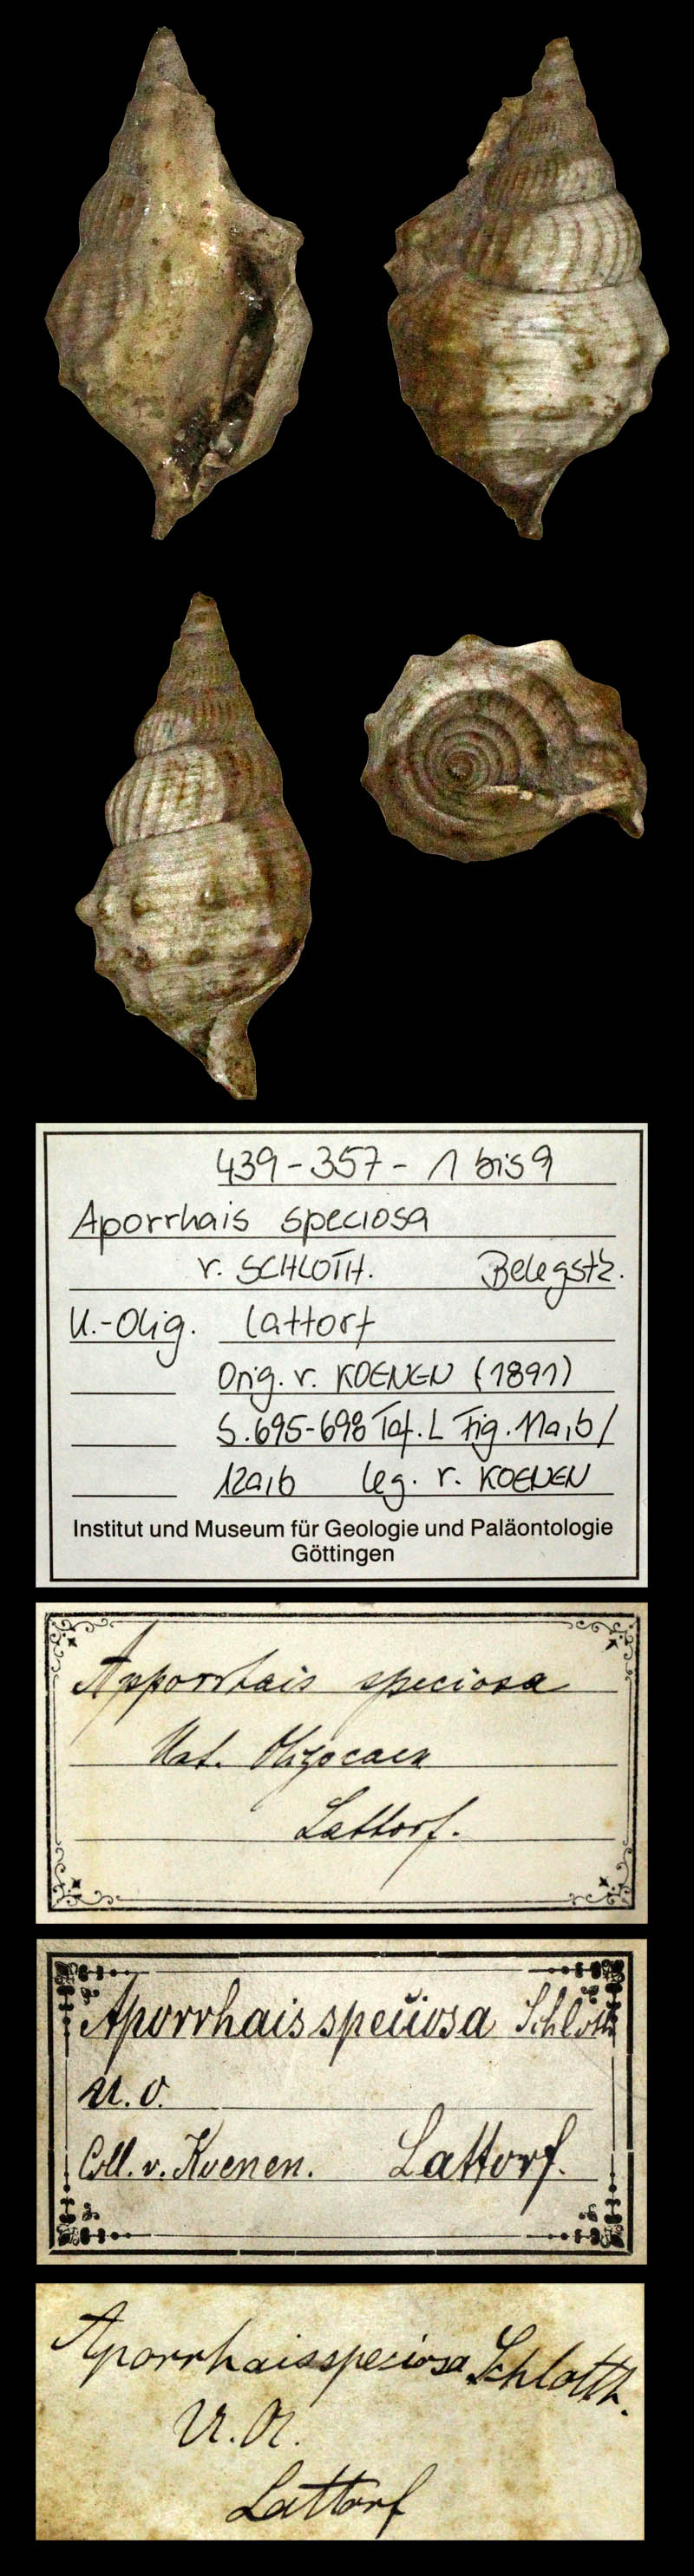 439-357-1 bis 9
Aporrhais speciosa
v. SCHLOTH. Belegst.
U.-Olig. Lattorf
Orig. v. KOENEN (1891)
S. 695-698 Taf. L Fig. 11a,b/
12a,b leg. v. KOENEN
Institut und Museum für Geologie und Paläontologie
Göttingen
Apporrhais speciosa
Unt. Oligocaen
Lattorf.
Aporrhais speciosa Schloth
U. O.
Coll. v. Koenen. Lattorf.
Aporrhais speciosa Schlotth.
U. Ol.
Lattorf